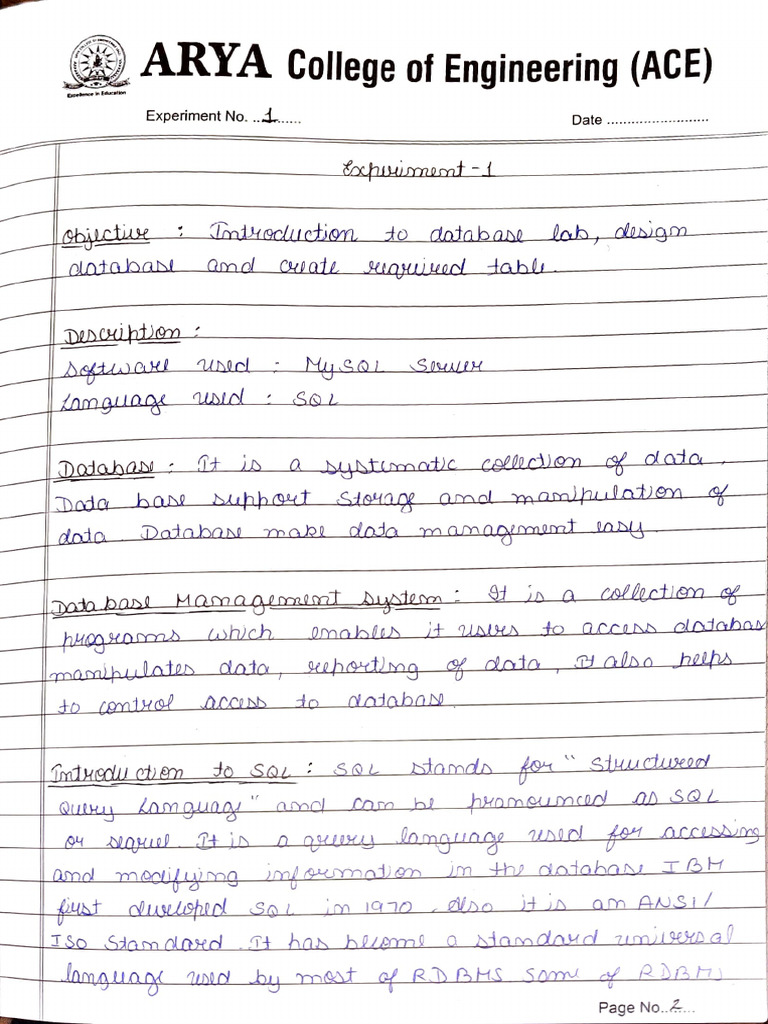 ARYA College of Engineering (ACE)
Excellence in Education
Experiment No. ...1.......
Date ..........................
Experiment - 1
Objective : Introduction to database lab, design
database and create required table.
Description :
Software used : MySQL Server
Language used : SQL
Database : It is a systematic collection of data.
Data base support storage and manipulation of
data. Database make data management easy
Database Management System : It is a collection of
programs which enables it users to access databas
manipulates data, reporting of data, It also helps
to control access to database.
Introduction to SQL : SQL stands for "Structured
Query Language" and can be pronounced as SQL
or sequel. It is a query language used for accessing
and modifying information in the database IBM
first developed SQL in 1970. Also it is an ANSI/
ISO Standard. It has become a standard universal
language used by most of RDBMS some of RDBMS
Page No..2......